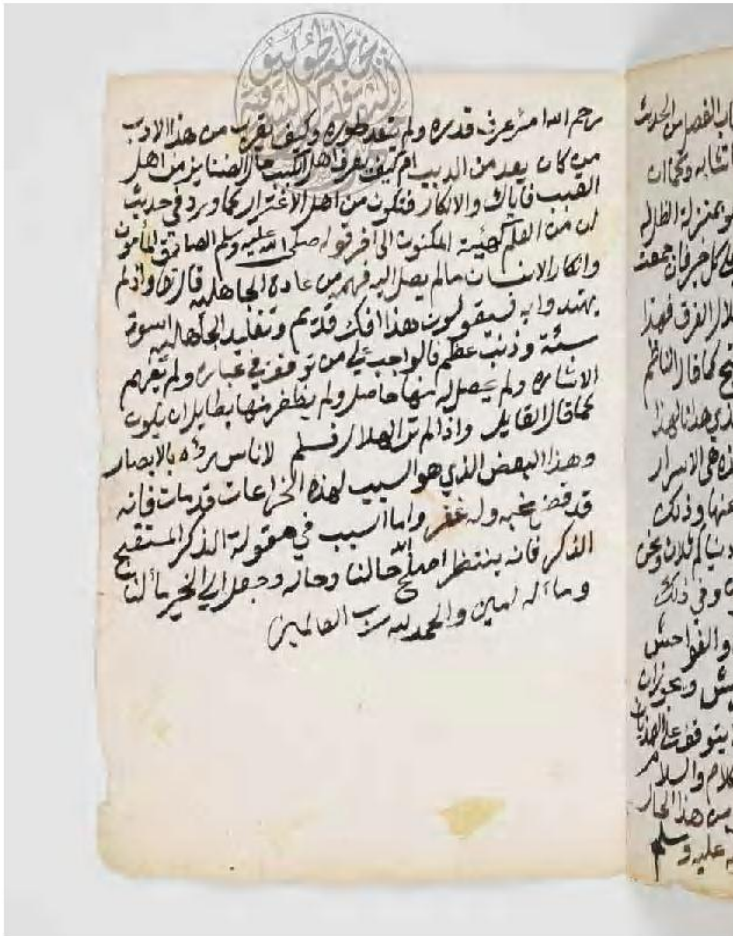 رحم الله امرء عرف قدره ولم يتعد طوره وكيف يقرب من هذا الادب
من كان يعد من الدبب ام كيف يعرف اهل الكتب حال الضنايز من اهل
القبب فاياك والانكار فتكون من اهل الاغترار كما ورد في حديث
ان من العلم كهيئة المكنون الى اخر قوله صلى الله عليه وسلم الصادق المأمون
وانكار الانسان مالم يصل اليه فهمه من عادة الجاهلية قال تعا واذ لم
يهتدوا به فسيقولون هذا افك قديم وتقليد الجاهلية اسوة
سيئة وذنب عظيم فالواجب على من توقف في عبارة ولم يفهم
الاشارة ولم يحصل له منها حاصل ولم يظفر منها بطايل ان يكون
كما قال القايل واذا لم تر الهلال فسلم لاناس رأه بالابصار
وهذا البعض الذي هو السبب لهذه الخزاعات قد مات فانه
قد قضى نحبه وله غفر واما السبب في مقولة الذكر المستقبح
الفاكر فانه ينتظر اصلح الله حالنا وحاله وجعل الى الخير مألنا
وماله امين والحمد لله رب العالمين
باب القصد من الحديث
تشابه وكما ان
بمنزلة الظلاله
كما قال الناظم
هي الاسرار
عنها وذلك
وفي ذلك
والفواحش
ويجوز ان
يتوقف على
والسلام
من هذا الحال
عليه وسلم